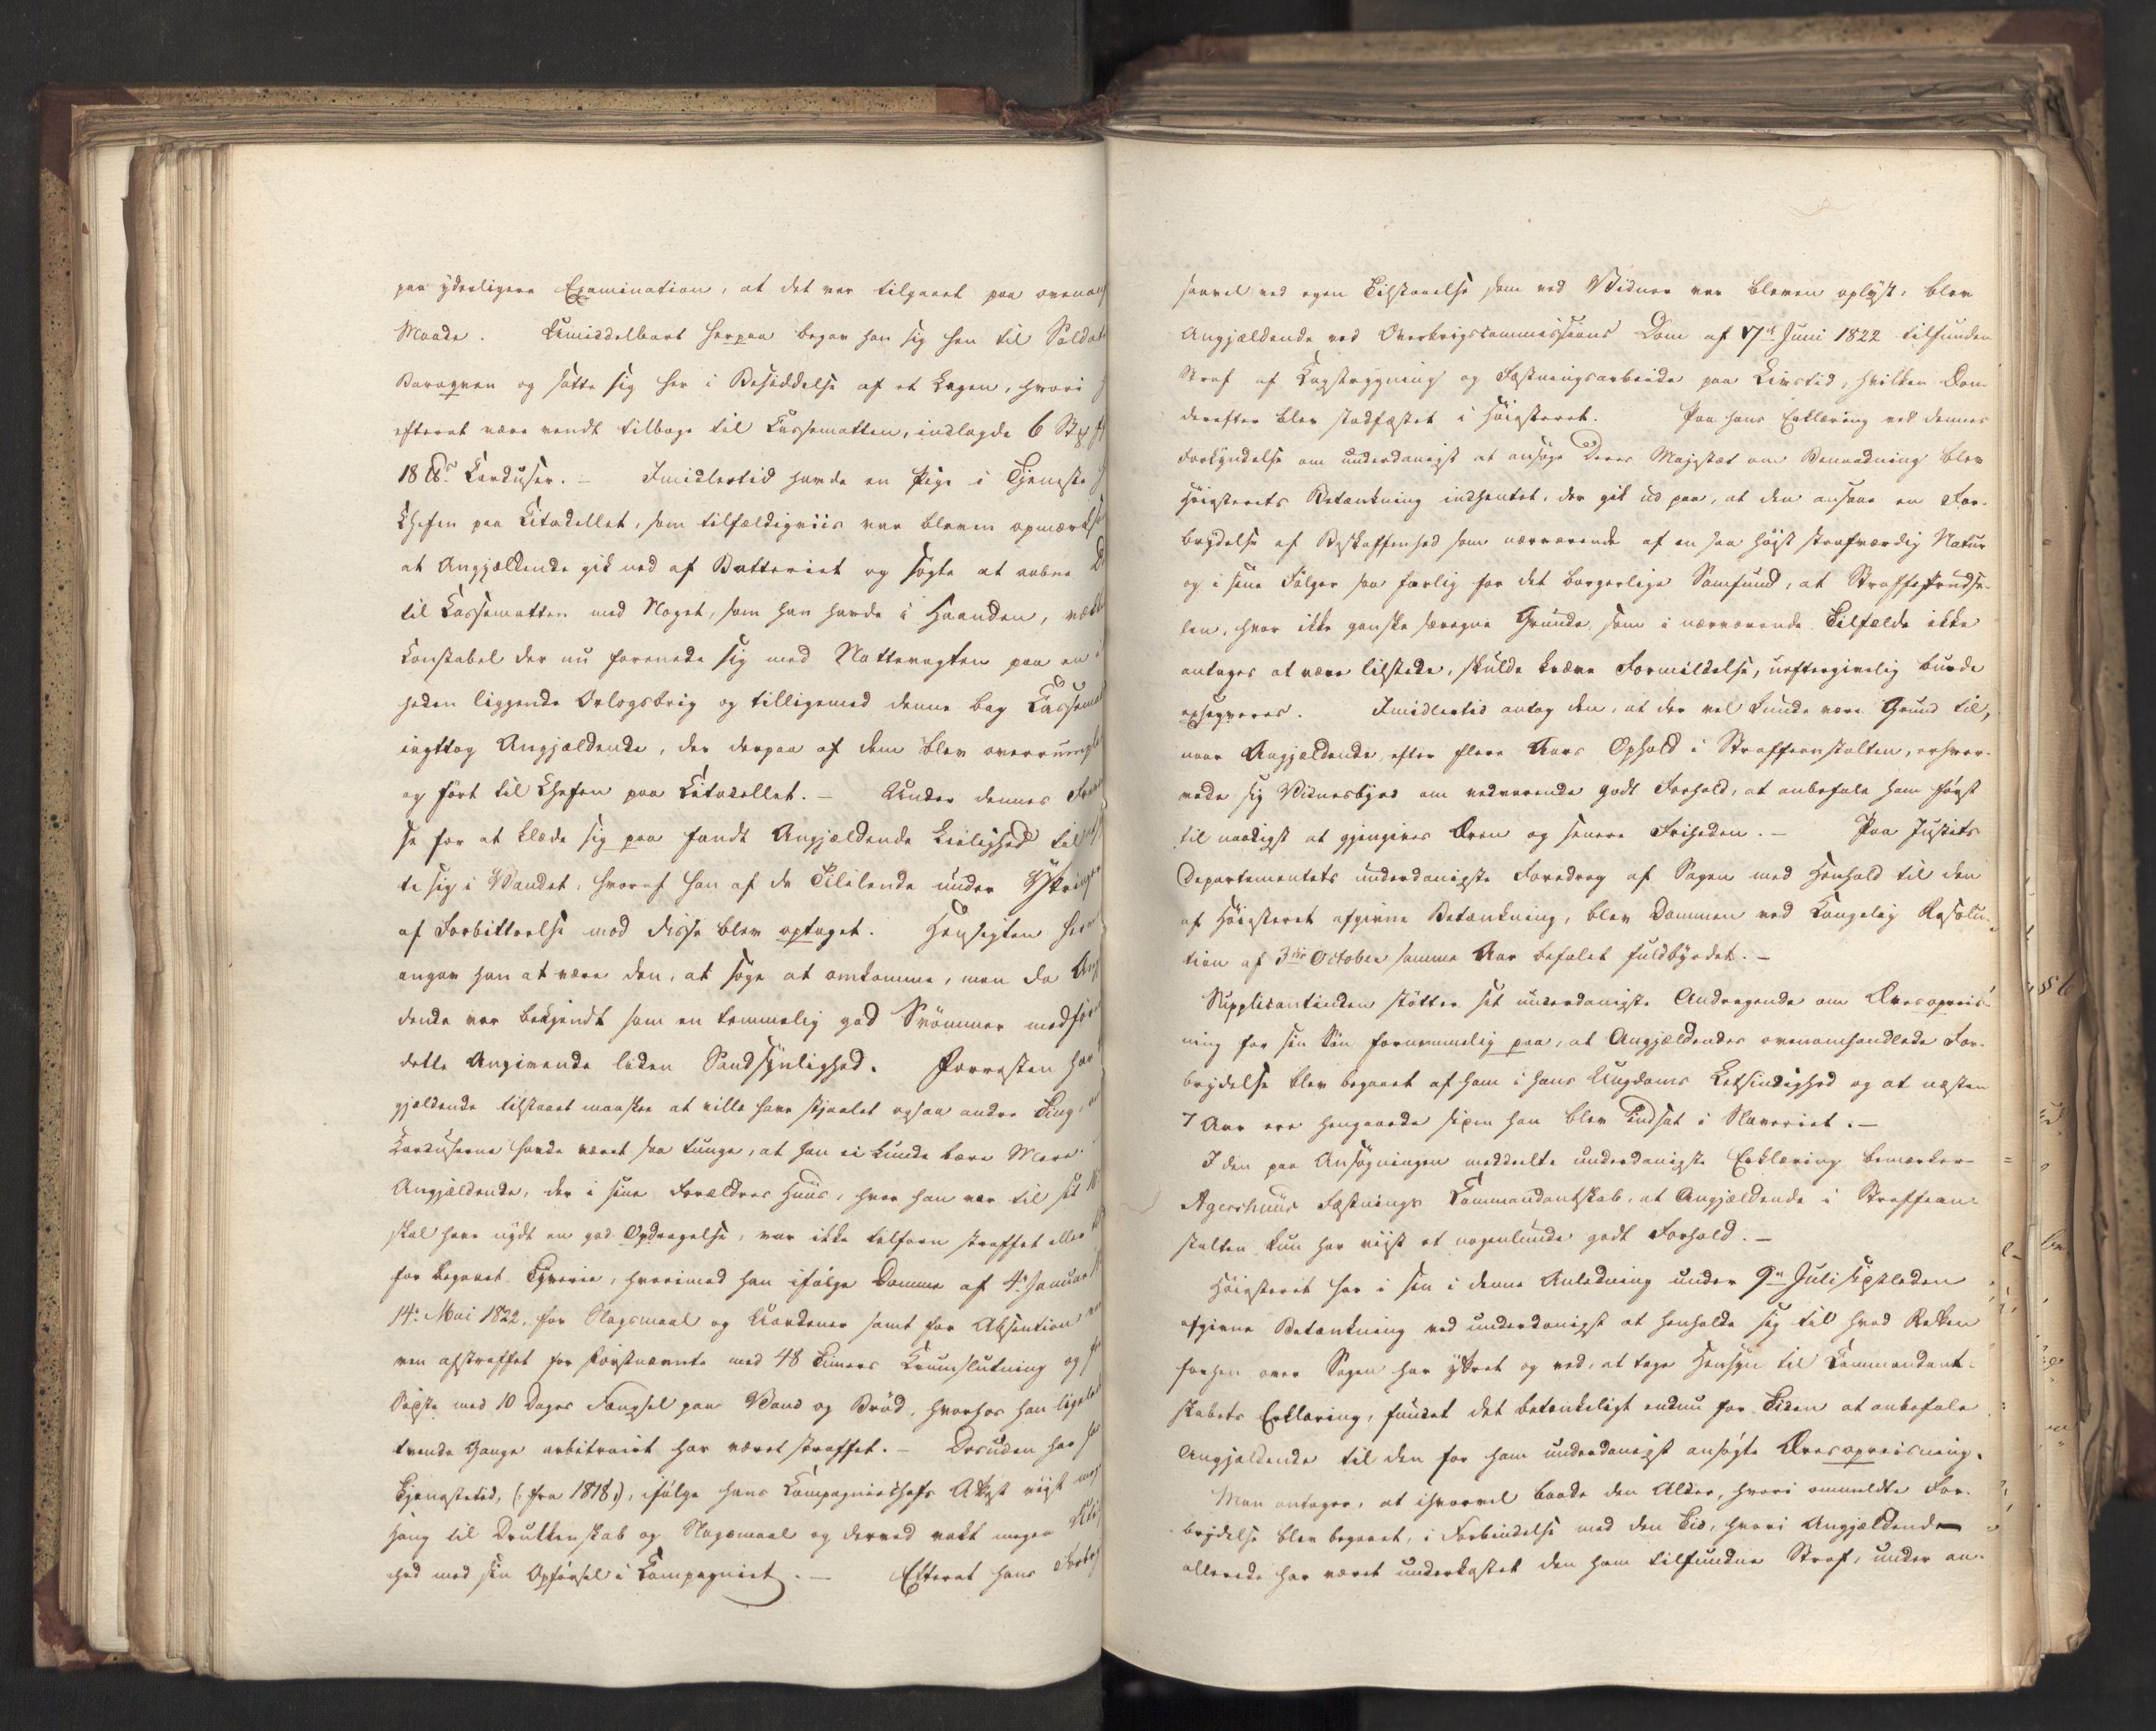 paa yderligere Examination, at det var tilgaaet paa
Maade. Umiddelbart herpaa begav han sig hen til
Baraquen og satte sig her i Besiddelse af et Lagen, hvori
efterat være vendt tilbage til Cassematten, indlagde 6
18 Karduser. – Imidlertid havde en Pige i Tjeneste
Chefen paa Citadellet, som tilfældigviis var bleven
at Angjældende gik ned af Batteriet og søgte at aabne
til Cassematten med Noget, som han havde i Haanden,
Konstabel der nu forenede sig med Nattevagten paa en
heden liggende Orlogsbrig og tilligemed denne bag
iagttog Angjældende, der derpaa af dem blev
og ført til Chefen paa Citadellet. – Under dennes
se for at klæde sig paa fandt Angjældende Leilighed til
te sig i Vandet, hvoraf han af de Tililende under
af Forbittrelse mod disse blev optaget. Hensigten
angav han at være den, at søge at omkomme, men da
dende var bekjendt som en temmelig god Svømmer
dette Angivende liden Sandsynlighed. Forresten
gjældende tilstaaet maaskee at ville have stjaalet ogsaa andre Ting,
Karduserne havde været saa tunge, at han ei kunde bære Mere.
Angjældende, der i sine Forældres Huus, hvor han var til sit
skal have nydt en god Opdragelse, var ikke tilforn straffet eller
for begaaet Tyverie, hvorimod han ifølge Domme af 4. Januar
14. Mai 1822, for Slagsmaal og Uordener samt for Absention
ven afstraffet for Førstnævnte med 48 Timers Krumslutning og
Sidste med 10 Dages Fængsel paa Vand og Brød, hvorhos han
tvende Gange arbitrairt har været straffet. – Desuden har
Tjenestetid, (: fra 1818:), ifølge hans Compagniechefs Attest viist
Hang til Drukkenskab og Slagsmaal og derved vakt megen
hed med sin Opførsel i Compagniet. – Efterat hans
saavel ved egen Tilstaaelse som ved Vidner var bleven oplyst, blev
Angjældende ved Overkrigscommissions Dom af 17de Juni 1822 tilfunden
Straf af Kagstrygning og Fæstningsarbeide paa Livstid, hvilken Dom
derefter blev stadfæstet i Høiesteret. Paa hans Erklæring ved dennes
Forkyndelse om underdanigst at ansøge Deres Majestæt om Benaadning blev
Høiesterets Betænkning indhentet, der gik ud paa, at den ansaae en For-
brydelse af Beskaffenhed som nærværende af en saa høist strafværdig Natur
og i sine Følger saa farlig for det borgerlige Samfund, at Straffetrudse-
len, hvor ikke ganske særegne Grunde, som i nærværende Tilfælde ikke
antages at være tilstede, skulde kræve Formildelse, ueftergivelig burde
exseqveres. Imidlertid antog den, at der vel kunde være Grund til,
naar Angjældende, efter flere Aars Ophold i Straffeanstalten, erhver-
vede sig Vidnesbyrd om vedvarende godt Forhold, at anbefale ham først
til naadigst at gjengives Æren og senere Friheden. – Paa Justits
Departementets underdanigste Foredrag af Sagen med Henhold til den
af Høiesteret afgivne Betænkning, blev Dommen ved Kongelig Resolu-
tion af 3die October samme Aar befalet fuldbyrdet. –
Supplicantinden støtter sit underdanigste Andragende om Æresopreis-
ning for sin Søn fornemmelig paa, at Angjældendes ovenomhandlede For-
brydelse blev begaaet af ham i hans Ungdoms Letsindighed og at næsten
7 Aar ere hengaaede siden han blev indsat i Slaveriet. –
I den paa Ansøgningen meddeelte underdanigste Erklæring bemærker
Agershuus Fæstnings Commandantskab, at Angjældende i Straffean-
stalten kun har viist et nogenlunde godt Forhold. –
Høiesteret har i sin i denne Anledning under 9de Juli sidstleden
afgivne Betænkning ved underdanigst at henholde sig til hvad Retten
forhen over Sagen har yttret og ved, at tage Hensyn til Commandant-
skabets Erklæring, fundet det betænkeligt endnu for Tiden at anbefale
Angjældende til den for ham underdanigst ansøgte Æresopreisning.
Man antager, at ihvorvel baade den Alder, hvori ommeldte For-
brydelse blev begaaet, i Forbindelse med den Tid, hvori Angjældende
allerede har været underkastet den ham tilfundne Straf, under an-